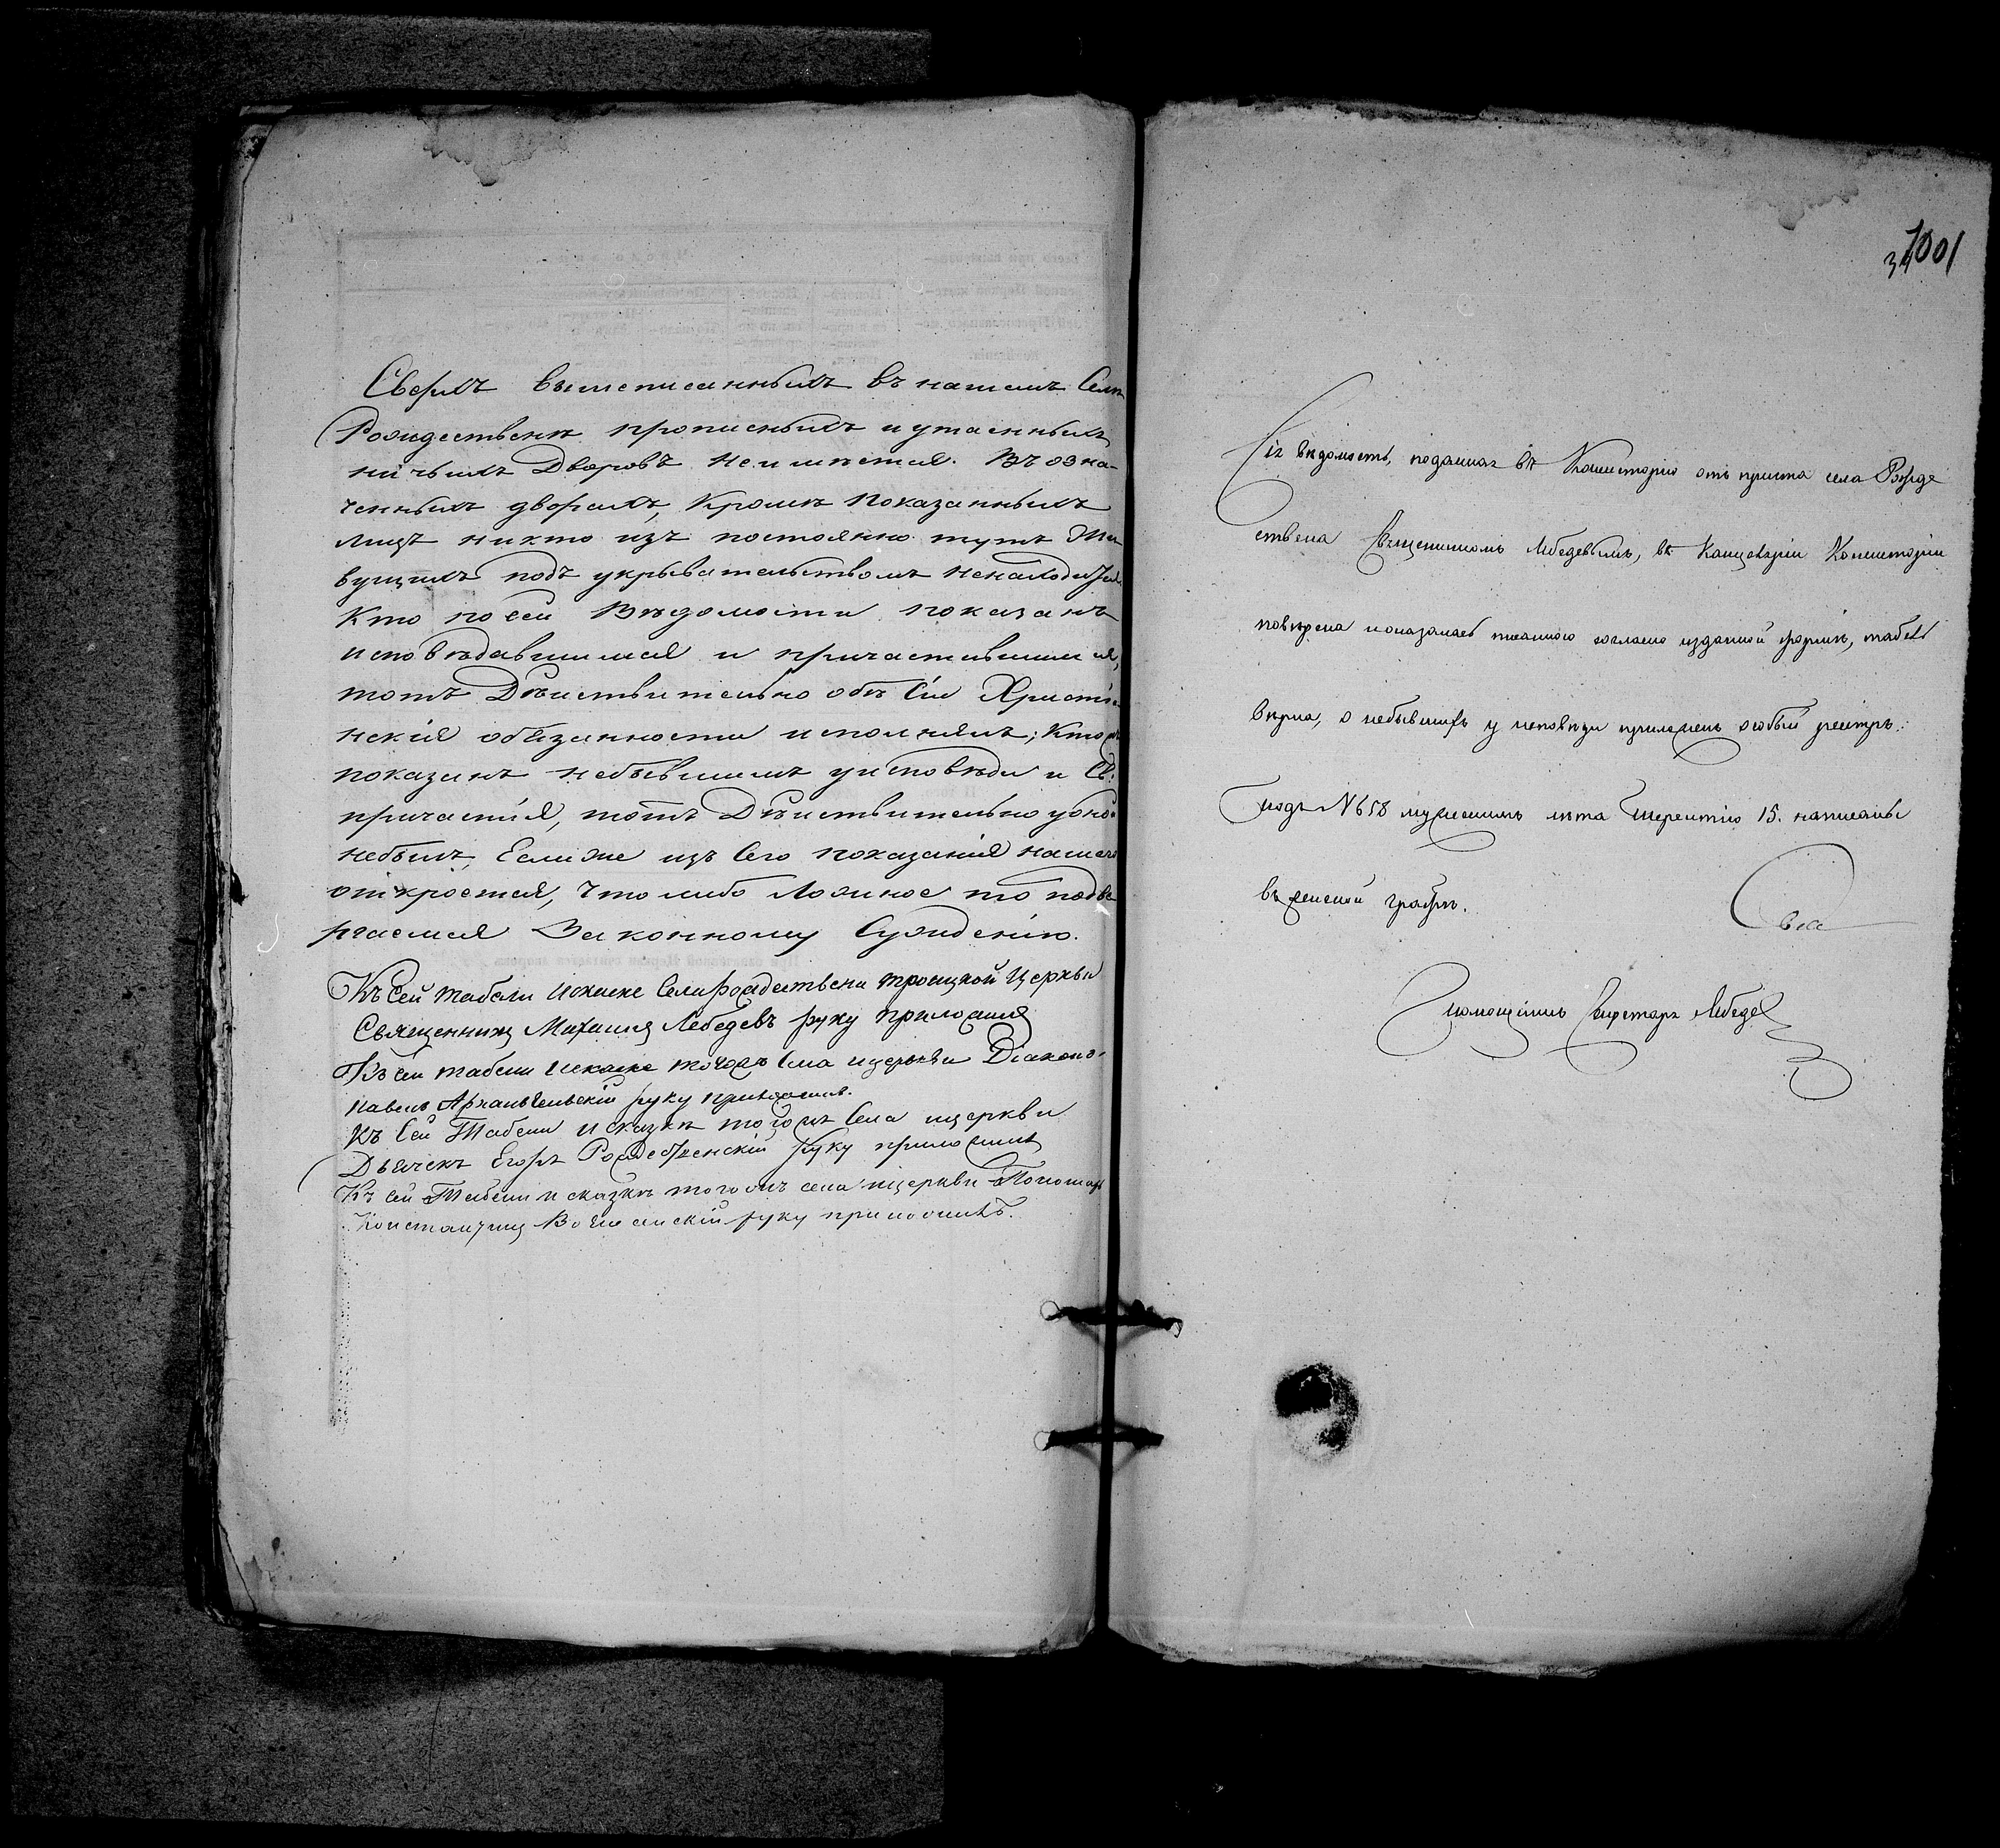 Сверхъ вышеписанныхъ въ нашемъ Селѣ
Рождественѣ прописныхъ и утаенныхъ
ничьихъ Дворовъ неимѣется. Въ озна-
ченныхъ дворахъ, Кромѣ показанныхъ
лицъ никто изъ постоянно тутъ Жи
вущихъ подъ укрывательствомъ ненаходится
Кто по сей Вѣдомости показанъ
исповѣдавшимся и причастившимся,
тотъ Дѣйствительно обѣ Сіи Христіа
нскія обязанности исполнялъ; Кто
показанъ небывшимъ у исповѣди и Св.
причастія, тотъ Дѣйствительно у оной
небылъ, Если же изъ Сего показанія нашего
откроется, Что либо Ложное то подве
ргаемся Законному Сужденію.
Къ Сей табели Искаске Села Рождествена троицкой Церкви
Священникъ Михаилъ Лебедевъ руку приложилъ
Къ сей табели искаске тогожъ Села ицеркви Діаконъ
Павелъ Архангельскій руку приложилъ.
Къ Сей Табели исказкѣ тогожъ Села ицеркви
Дьячекъ Егоръ Рождественскій руку приложилъ
Къ сей Табели и сказкѣ тогожъ села ицеркви Пономарь
Константинъ руку приложилъ.
1001
Сія вѣдомость, поданная въ Консисторію отъ причта села Рожде
ствена Священникомъ Лебедевымъ, въ Канцеляріи Консисторіи
повѣрена и оказалась писанною согласно изданной формѣ, табель
вѣрна, о небывшихъ у исповѣди приложенъ особый реестръ.
подъ № 658 лѣта Терентію 15. написаны
въ женской графѣ.
Помощникъ Секретаря Лебедев